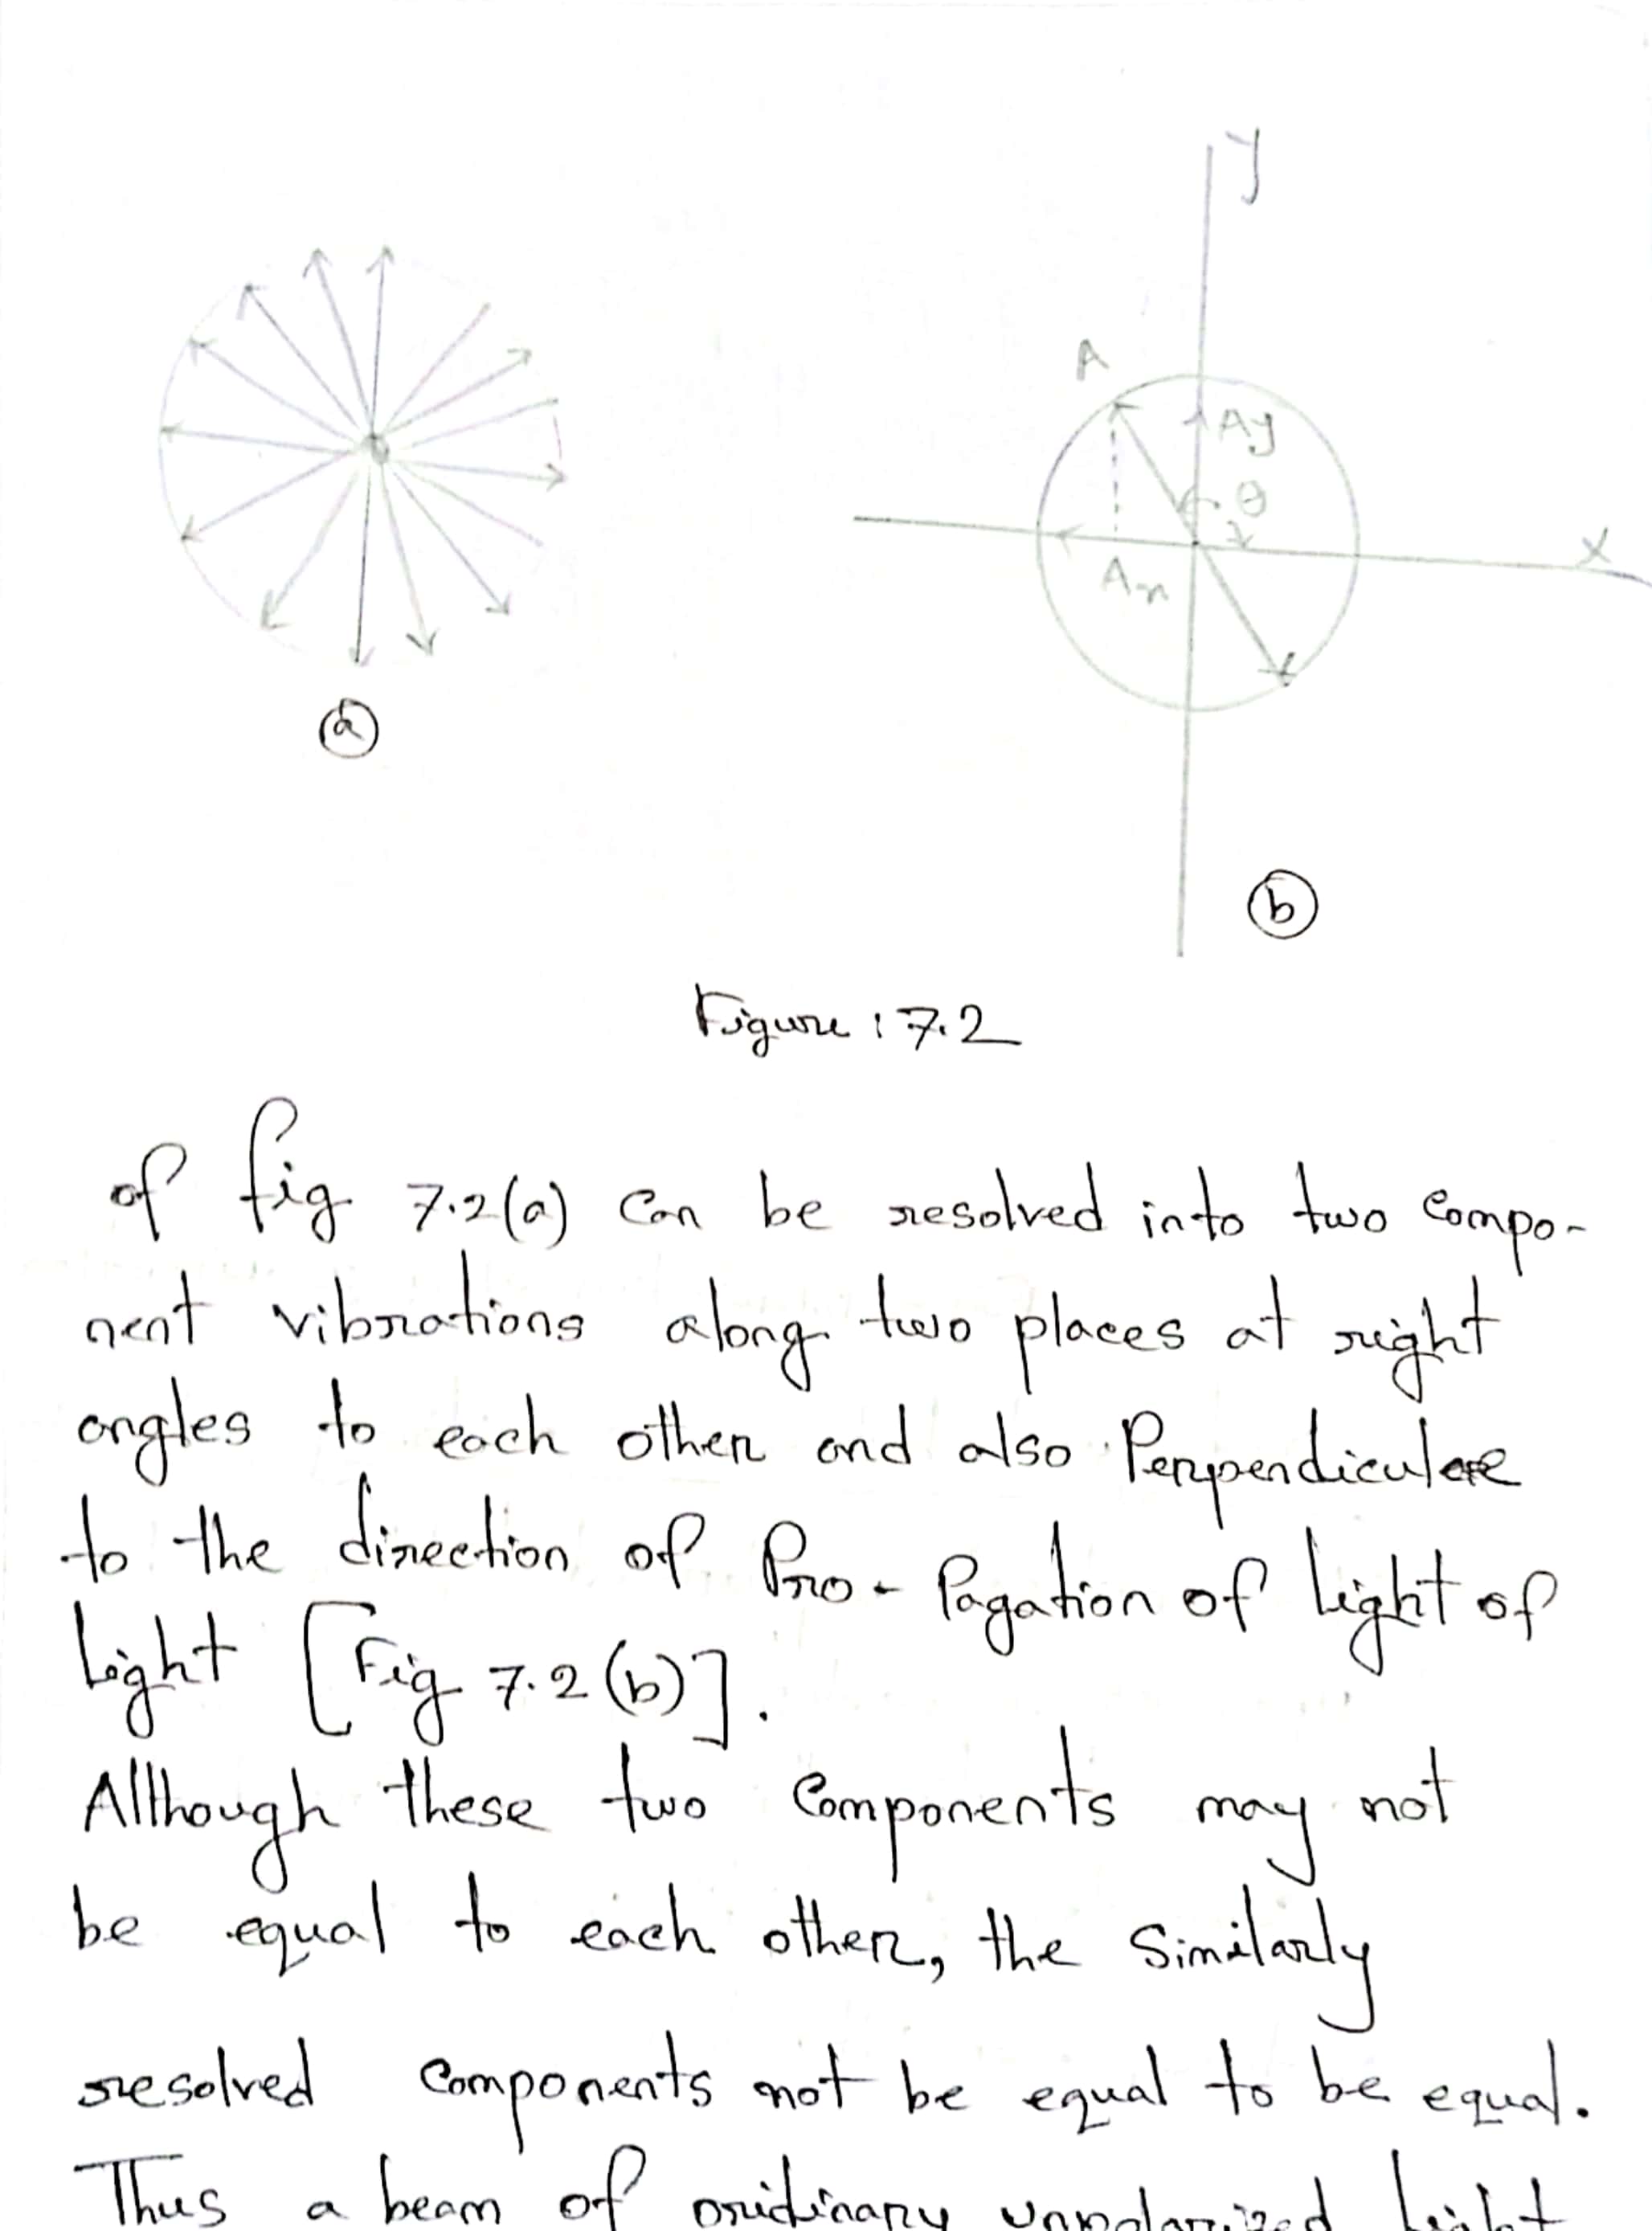 y
A
Ay
θ
x
Ax
a
b
Figure : 7.2
of fig 7.2(a) can be resolved into two compo-
nent vibrations along two places at right
angles to each other and also Perpendiculare
to the direction of Pro- Pagation of light of
light [Fig 7.2 (b)].
Although these two components may not
be equal to each other, the similarly
resolved components not be equal to be equal.
Thus a beam of oridinary unpolarized light